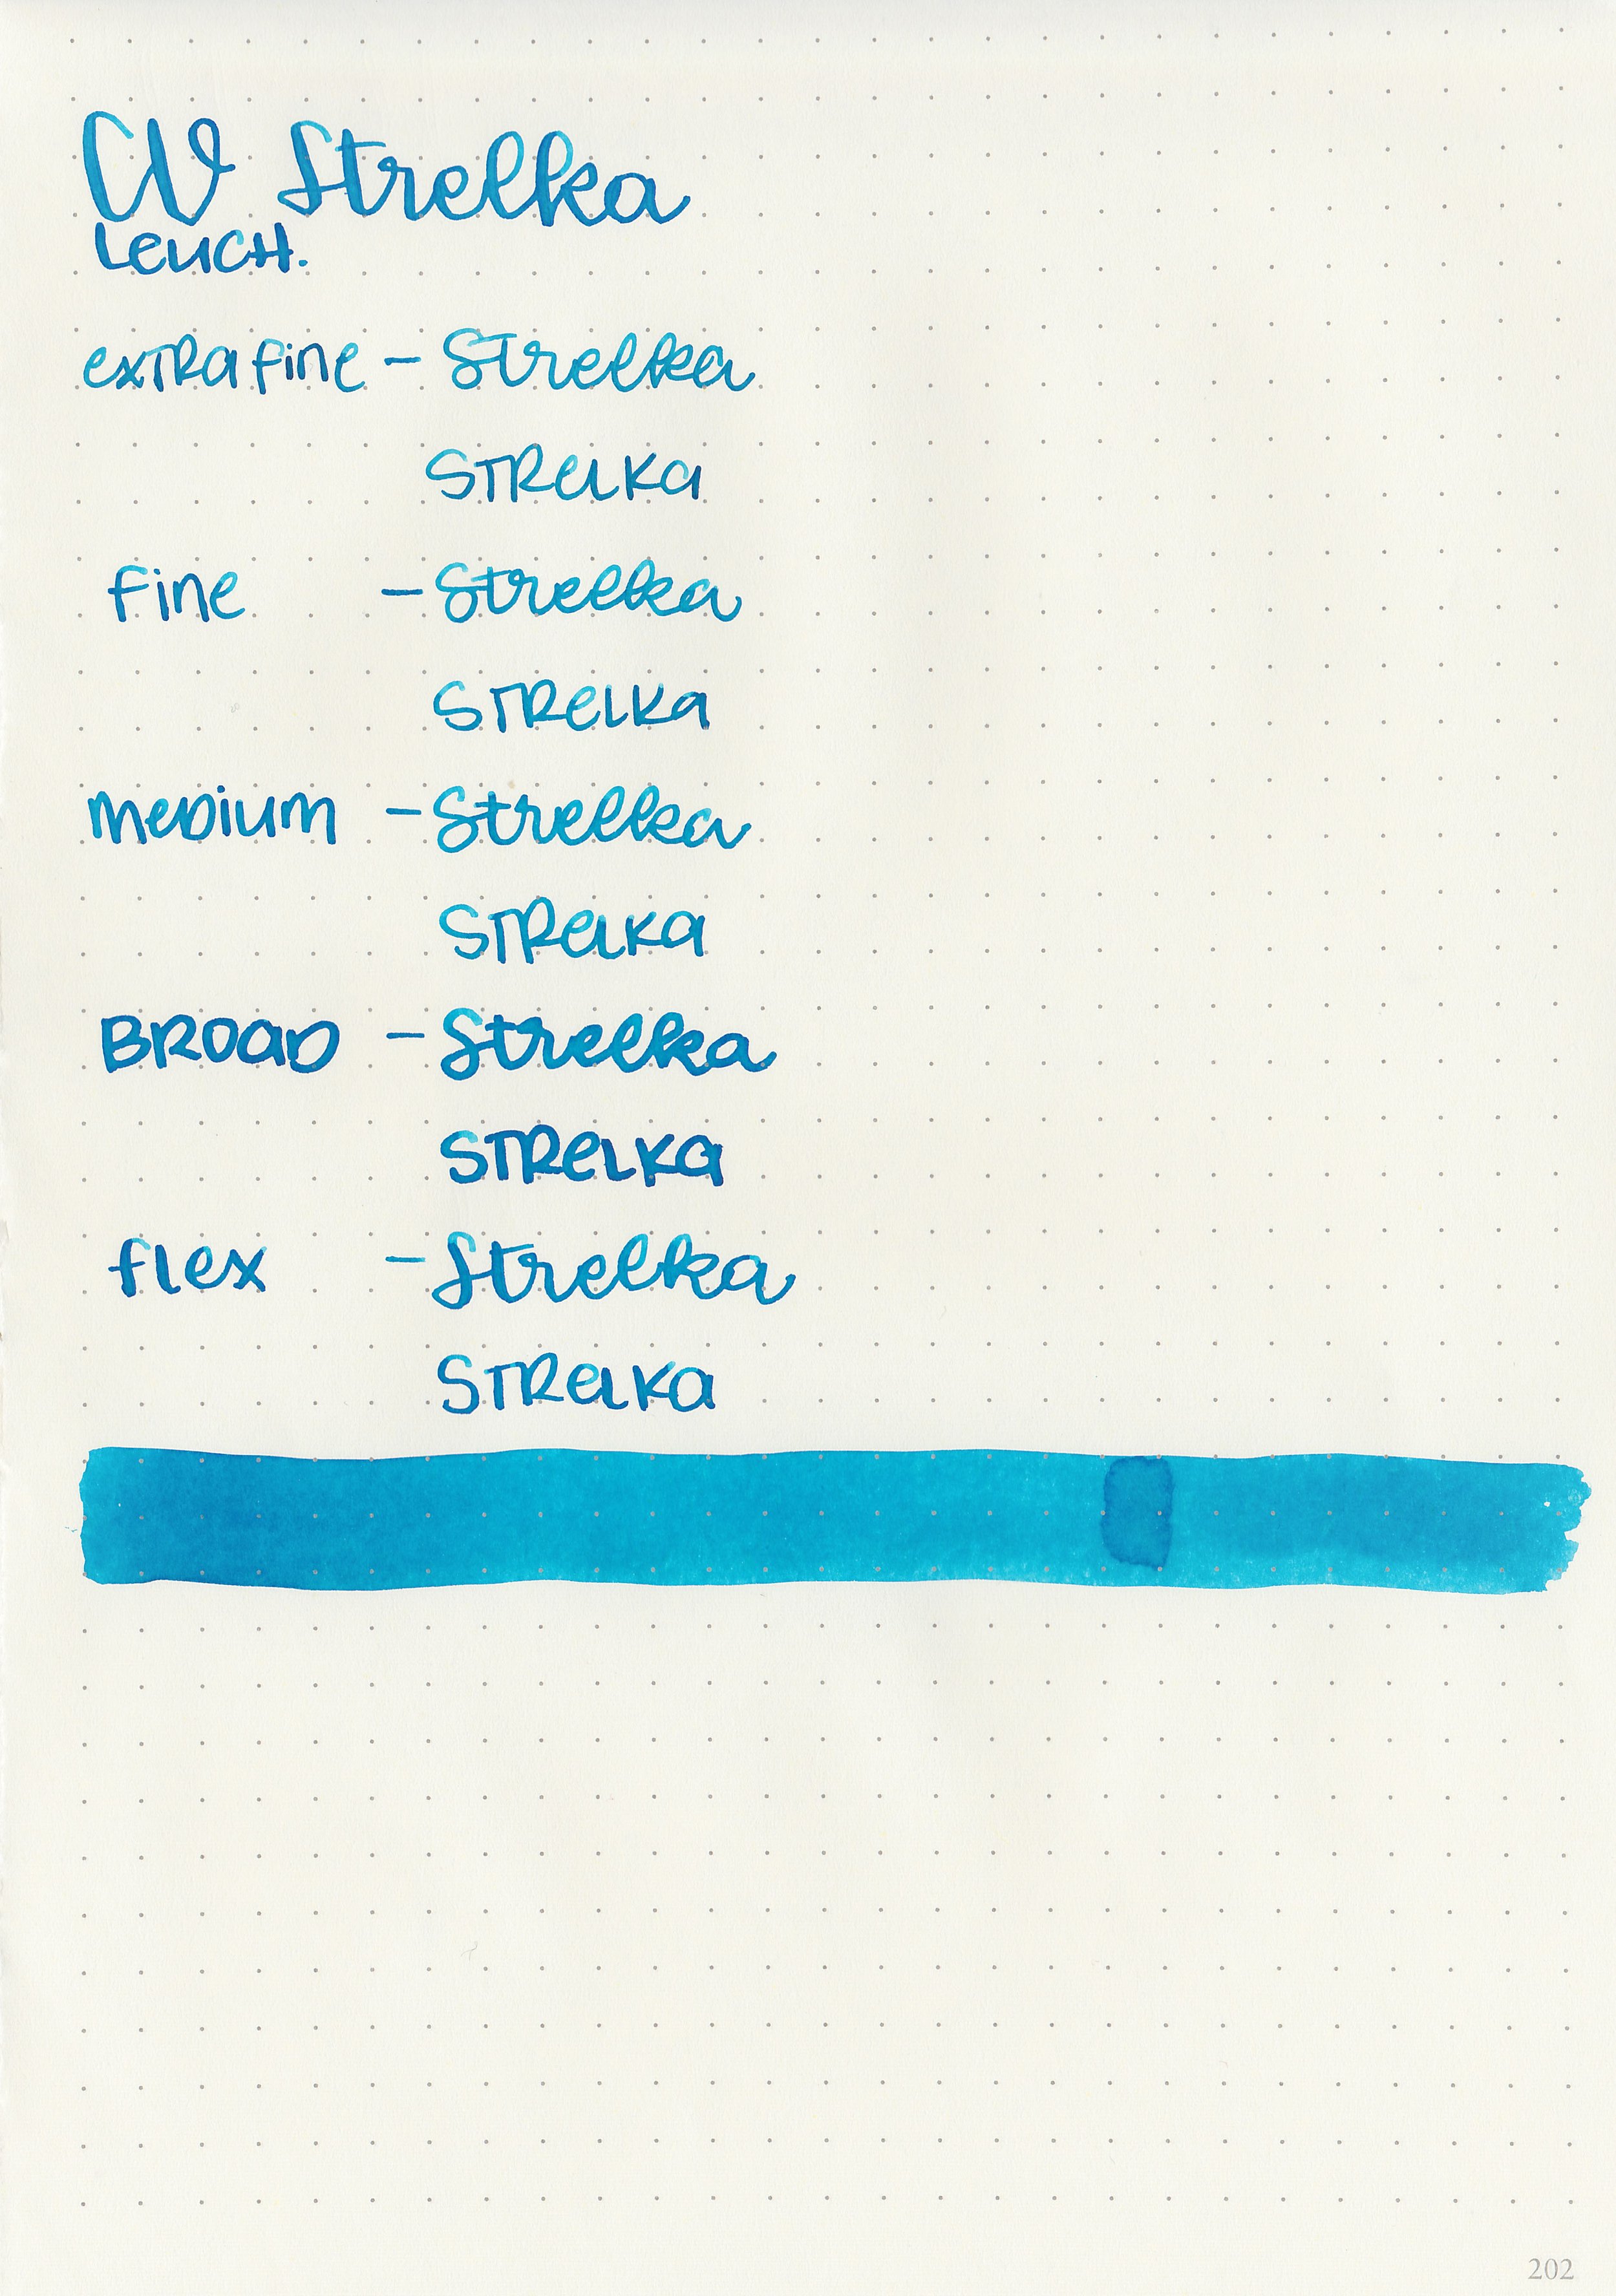 CW Strelka
Leuch.
extra fine – Strelka
Strelka
fine – Strelka
Strelka
medium – Strelka
Strelka
Broad – Strelka
Strelka
flex – Strelka
Strelka
202